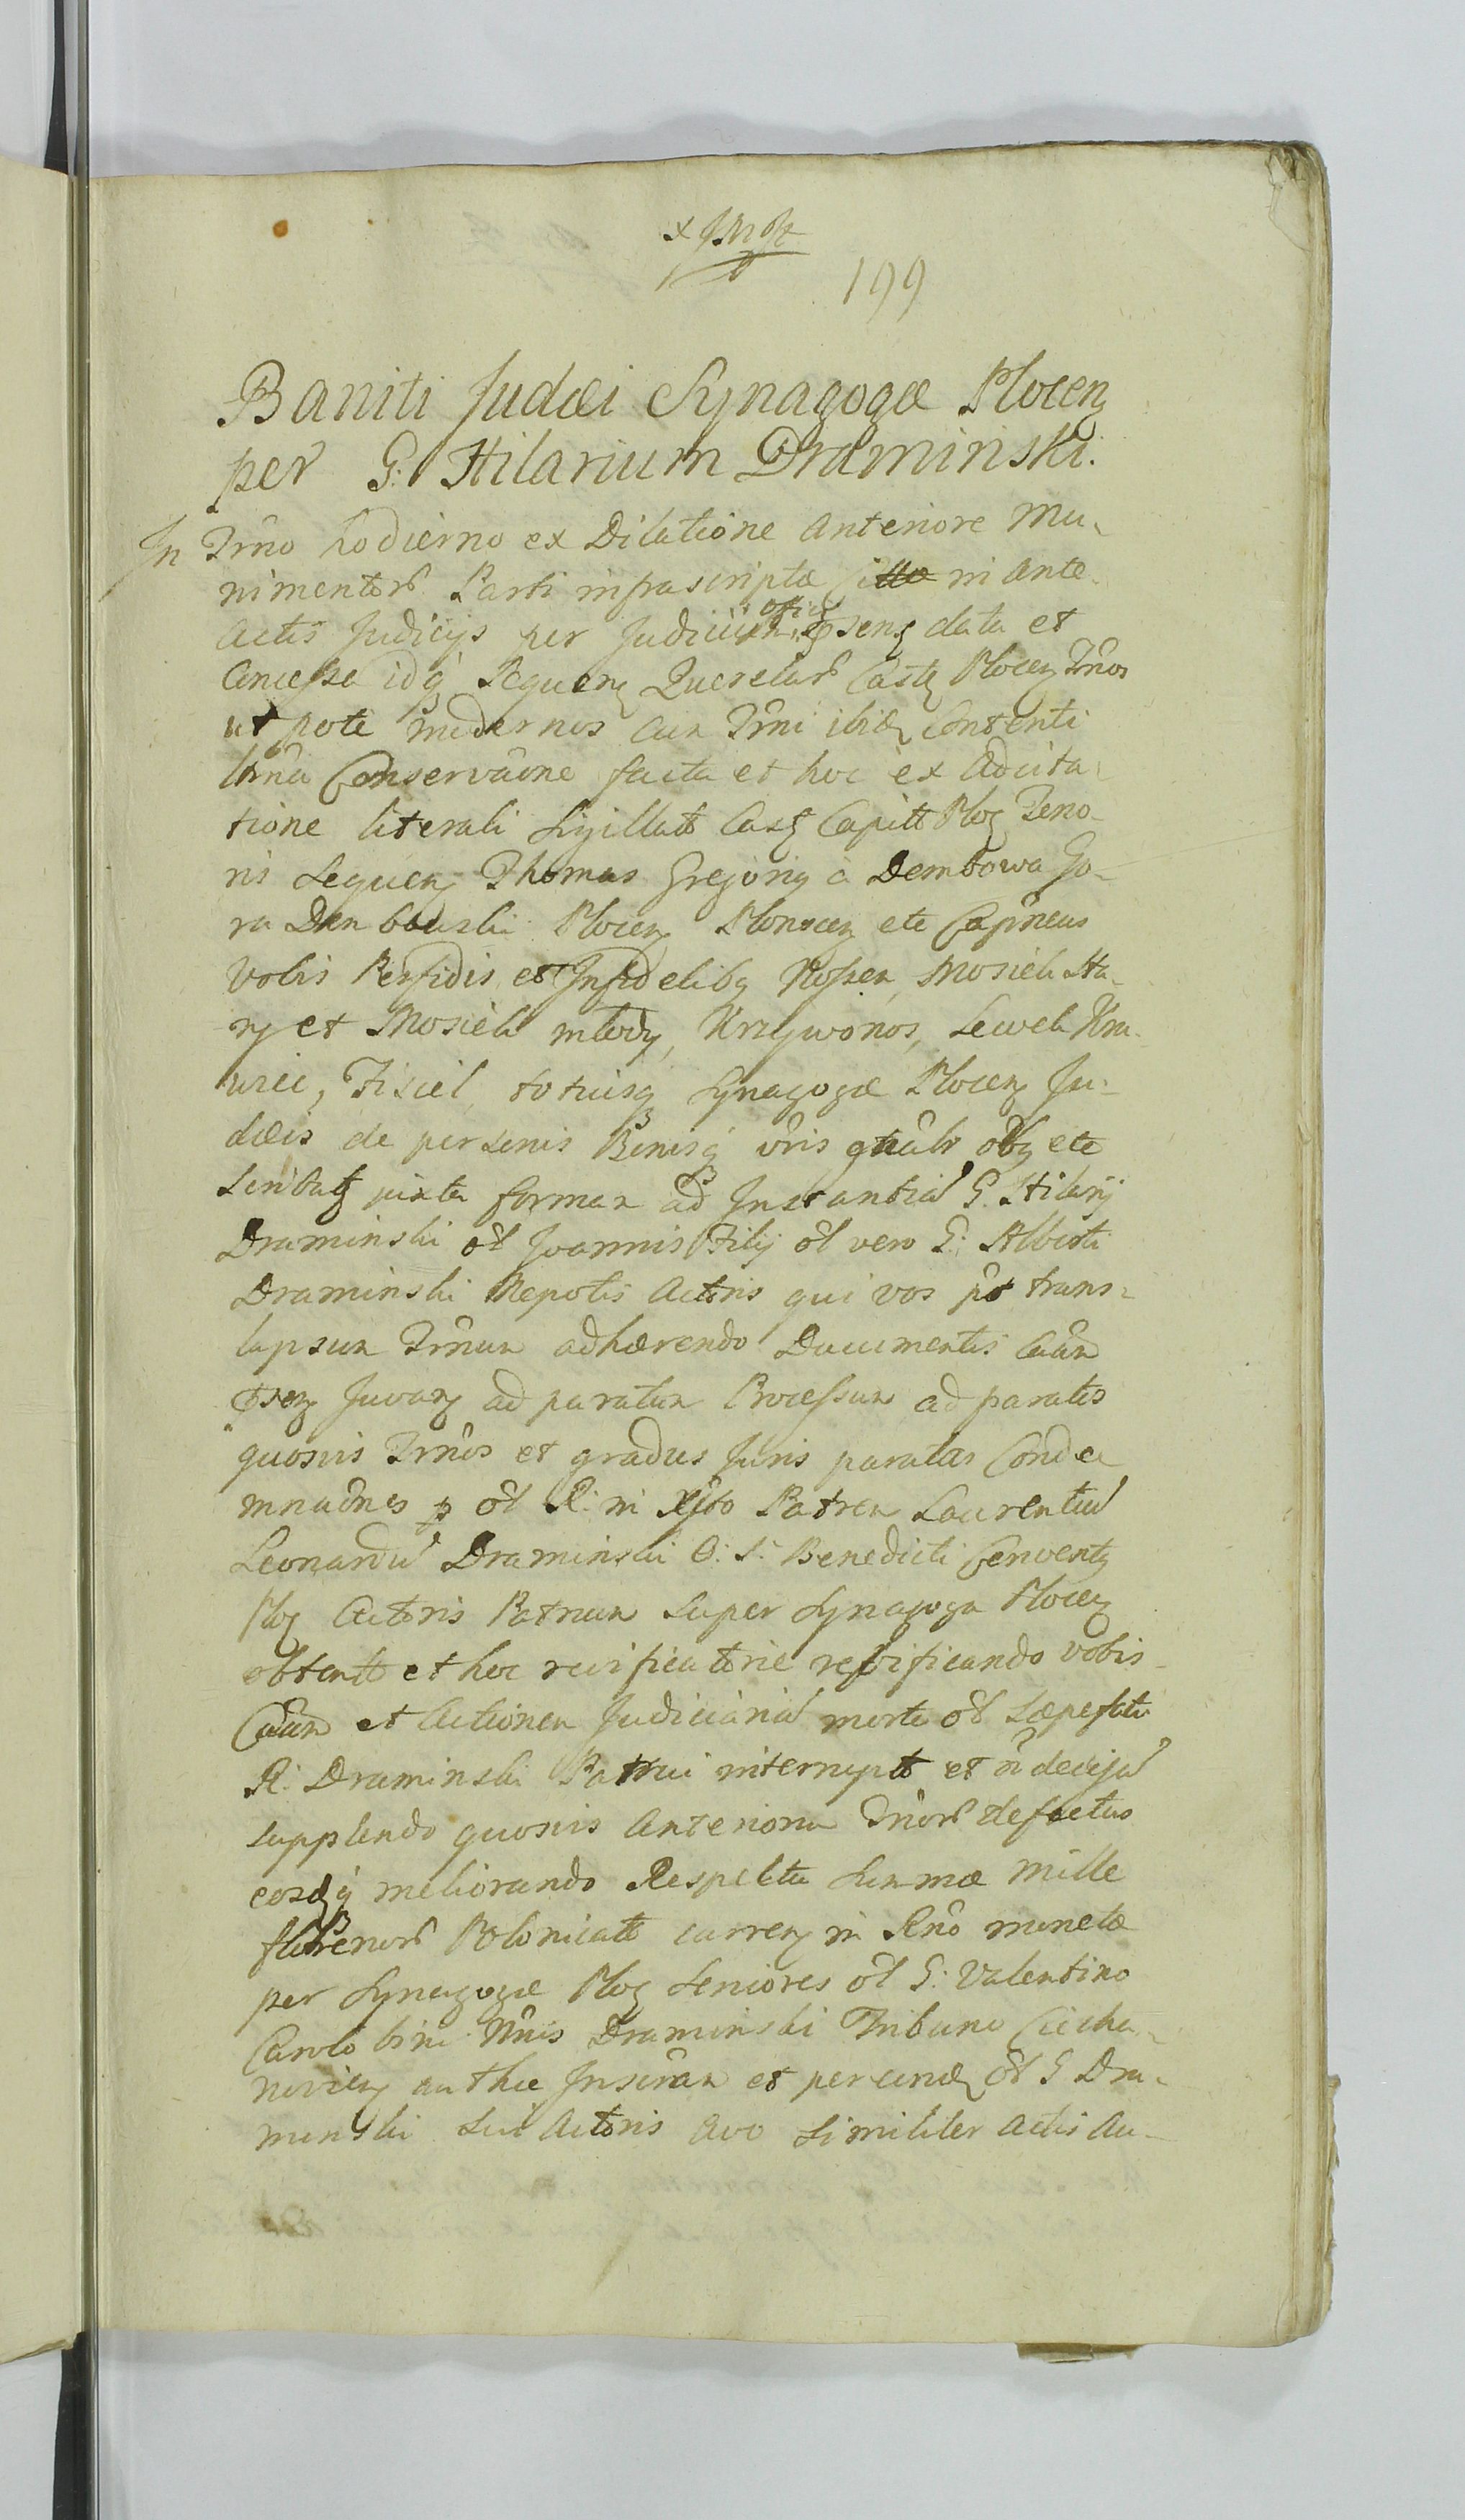 199
Baniti Judæi Synagogæ Plocen
per G: Hilarium Draminski.
In Trño hodierno ex Dilatione Anteriore Mu-
nimentor Parti infrascriptæ in Ante
Actis Judicijs per Judicium offi data et
Concessa idq Sequen Querelar Castr Plocen Trños
utpote modernos cum Trñi ibid Contenti
Conservãone facta et hoc ex Adcita-
tione literali Sigillat Cast Capitt Ploc Teno-
ris Sequen Thomas Gregorius à Dembowa Go-
ra Dembowski Plocen Plonscen etc Capñeus
Vobis Perfidis et Infidelibq Kossen, Mosiek Sta-
ry et Mosiek mlody, Krzywonos, Lewek Kra-
wiec, Fisiel, totiusq Synagogæ Plocen Ju-
dæis de personis Bonisq vris gñalr oibq etc
Scribat juxta forman ad Instantia G. Hilarij
Draminski ol Joannis Filij ol vero G: Alberti
Draminski Nepotis Actoris qui vos pt trans-
lapsum Trñum adhærendo Documentis Cãm
psen Juvan ad paratum Processum ad paratos
quosvis Trños et gradus Juris paratas Conde
mnaões p ol R: in Xsto Patrem Laurentiu
Leonardu Draminski O: S: Benedicti Convents
Ploc Actoris Patruum super Synagoga Plocen
obtent et hoc reivificatorie reivificando vobis
Cãm et Actionem Judiciaria morte ol Sæpefati
R: Draminski Patrui interrupt et ñ decisa
supplendo quosvis Anteriorum Trñor defectus
eosdq meliorando Respectu Summæ Mille
florenor Polonicat curren in Rño monetæ
per Synagogæ Ploc Seniores ol G: Valentino
Carolo bini Nñis Draminski Tribuno Ciecha-
novien authæ Inscrãm et perceinde ol G Dra-
minski Sui Actoris Avo Similiter Actis Au-